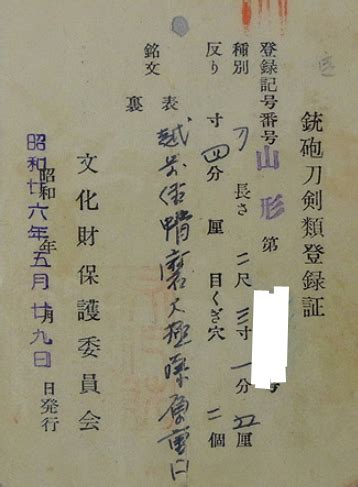 銃砲刀剣類登録証
登録記号番号 山形 第 号
種別 刀 長さ 二尺三寸一分五厘
反り 寸四分 厘 目くぎ穴 二個
銘文 表 越前住 磨大 原重
裏
文化財保護委員会
昭和 年 月 日発行
昭和廿六年五月廿九日